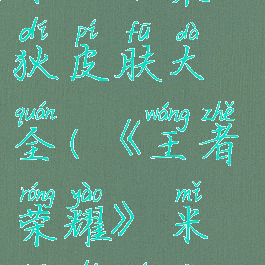 dí pí fū dà
狄皮肤大
quán wáng zhě
全(《王者
róng yào mǐ
荣耀》米